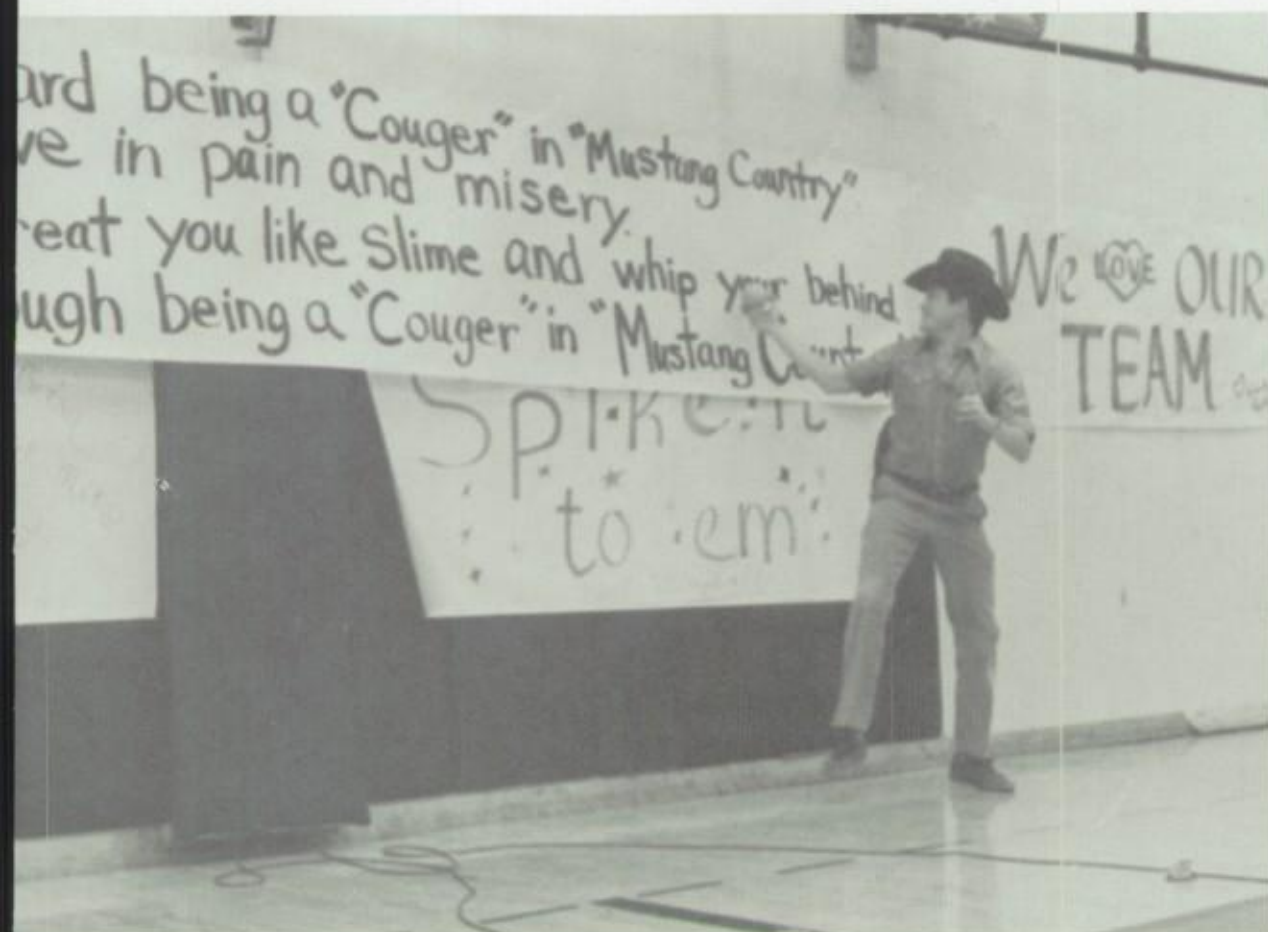 ard being a "Couger" in "Mustang Country"
ve in pain and misery.
reat you like Slime and whip your behind
ugh being a "Couger" in "Mustang
Spike it
to em
We LOVE OUR
TEAM